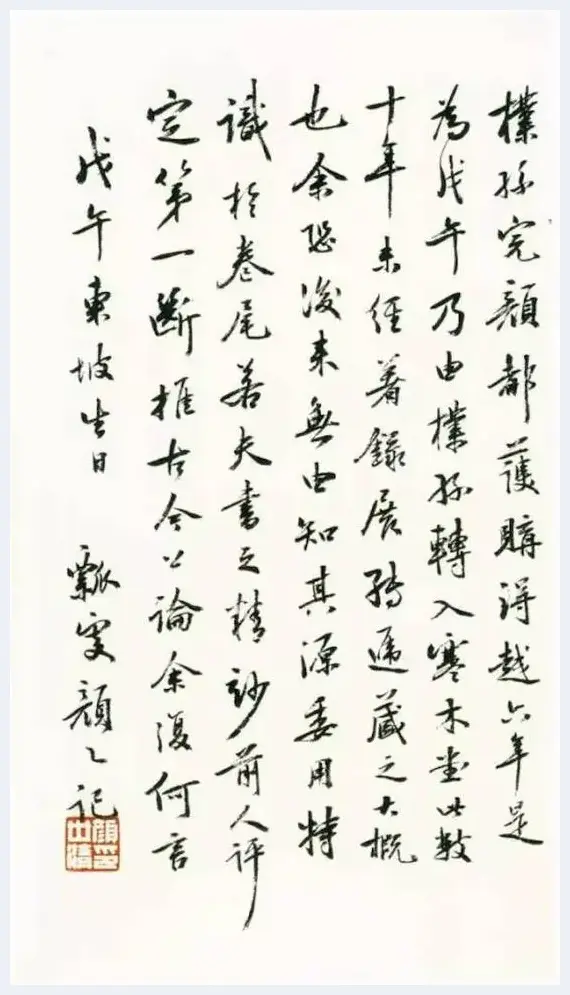 樸孫完顏都護購得越六年是
為戊午乃由樸孫轉入寒木堂此數
十年未經著錄展轉遞藏之大概
也余恐後來無由知其源委用特
識於卷尾若夫書之精妙前人評
定第一斷推古今公論余復何言
戊午東坡生日 瓢叟顏〻記